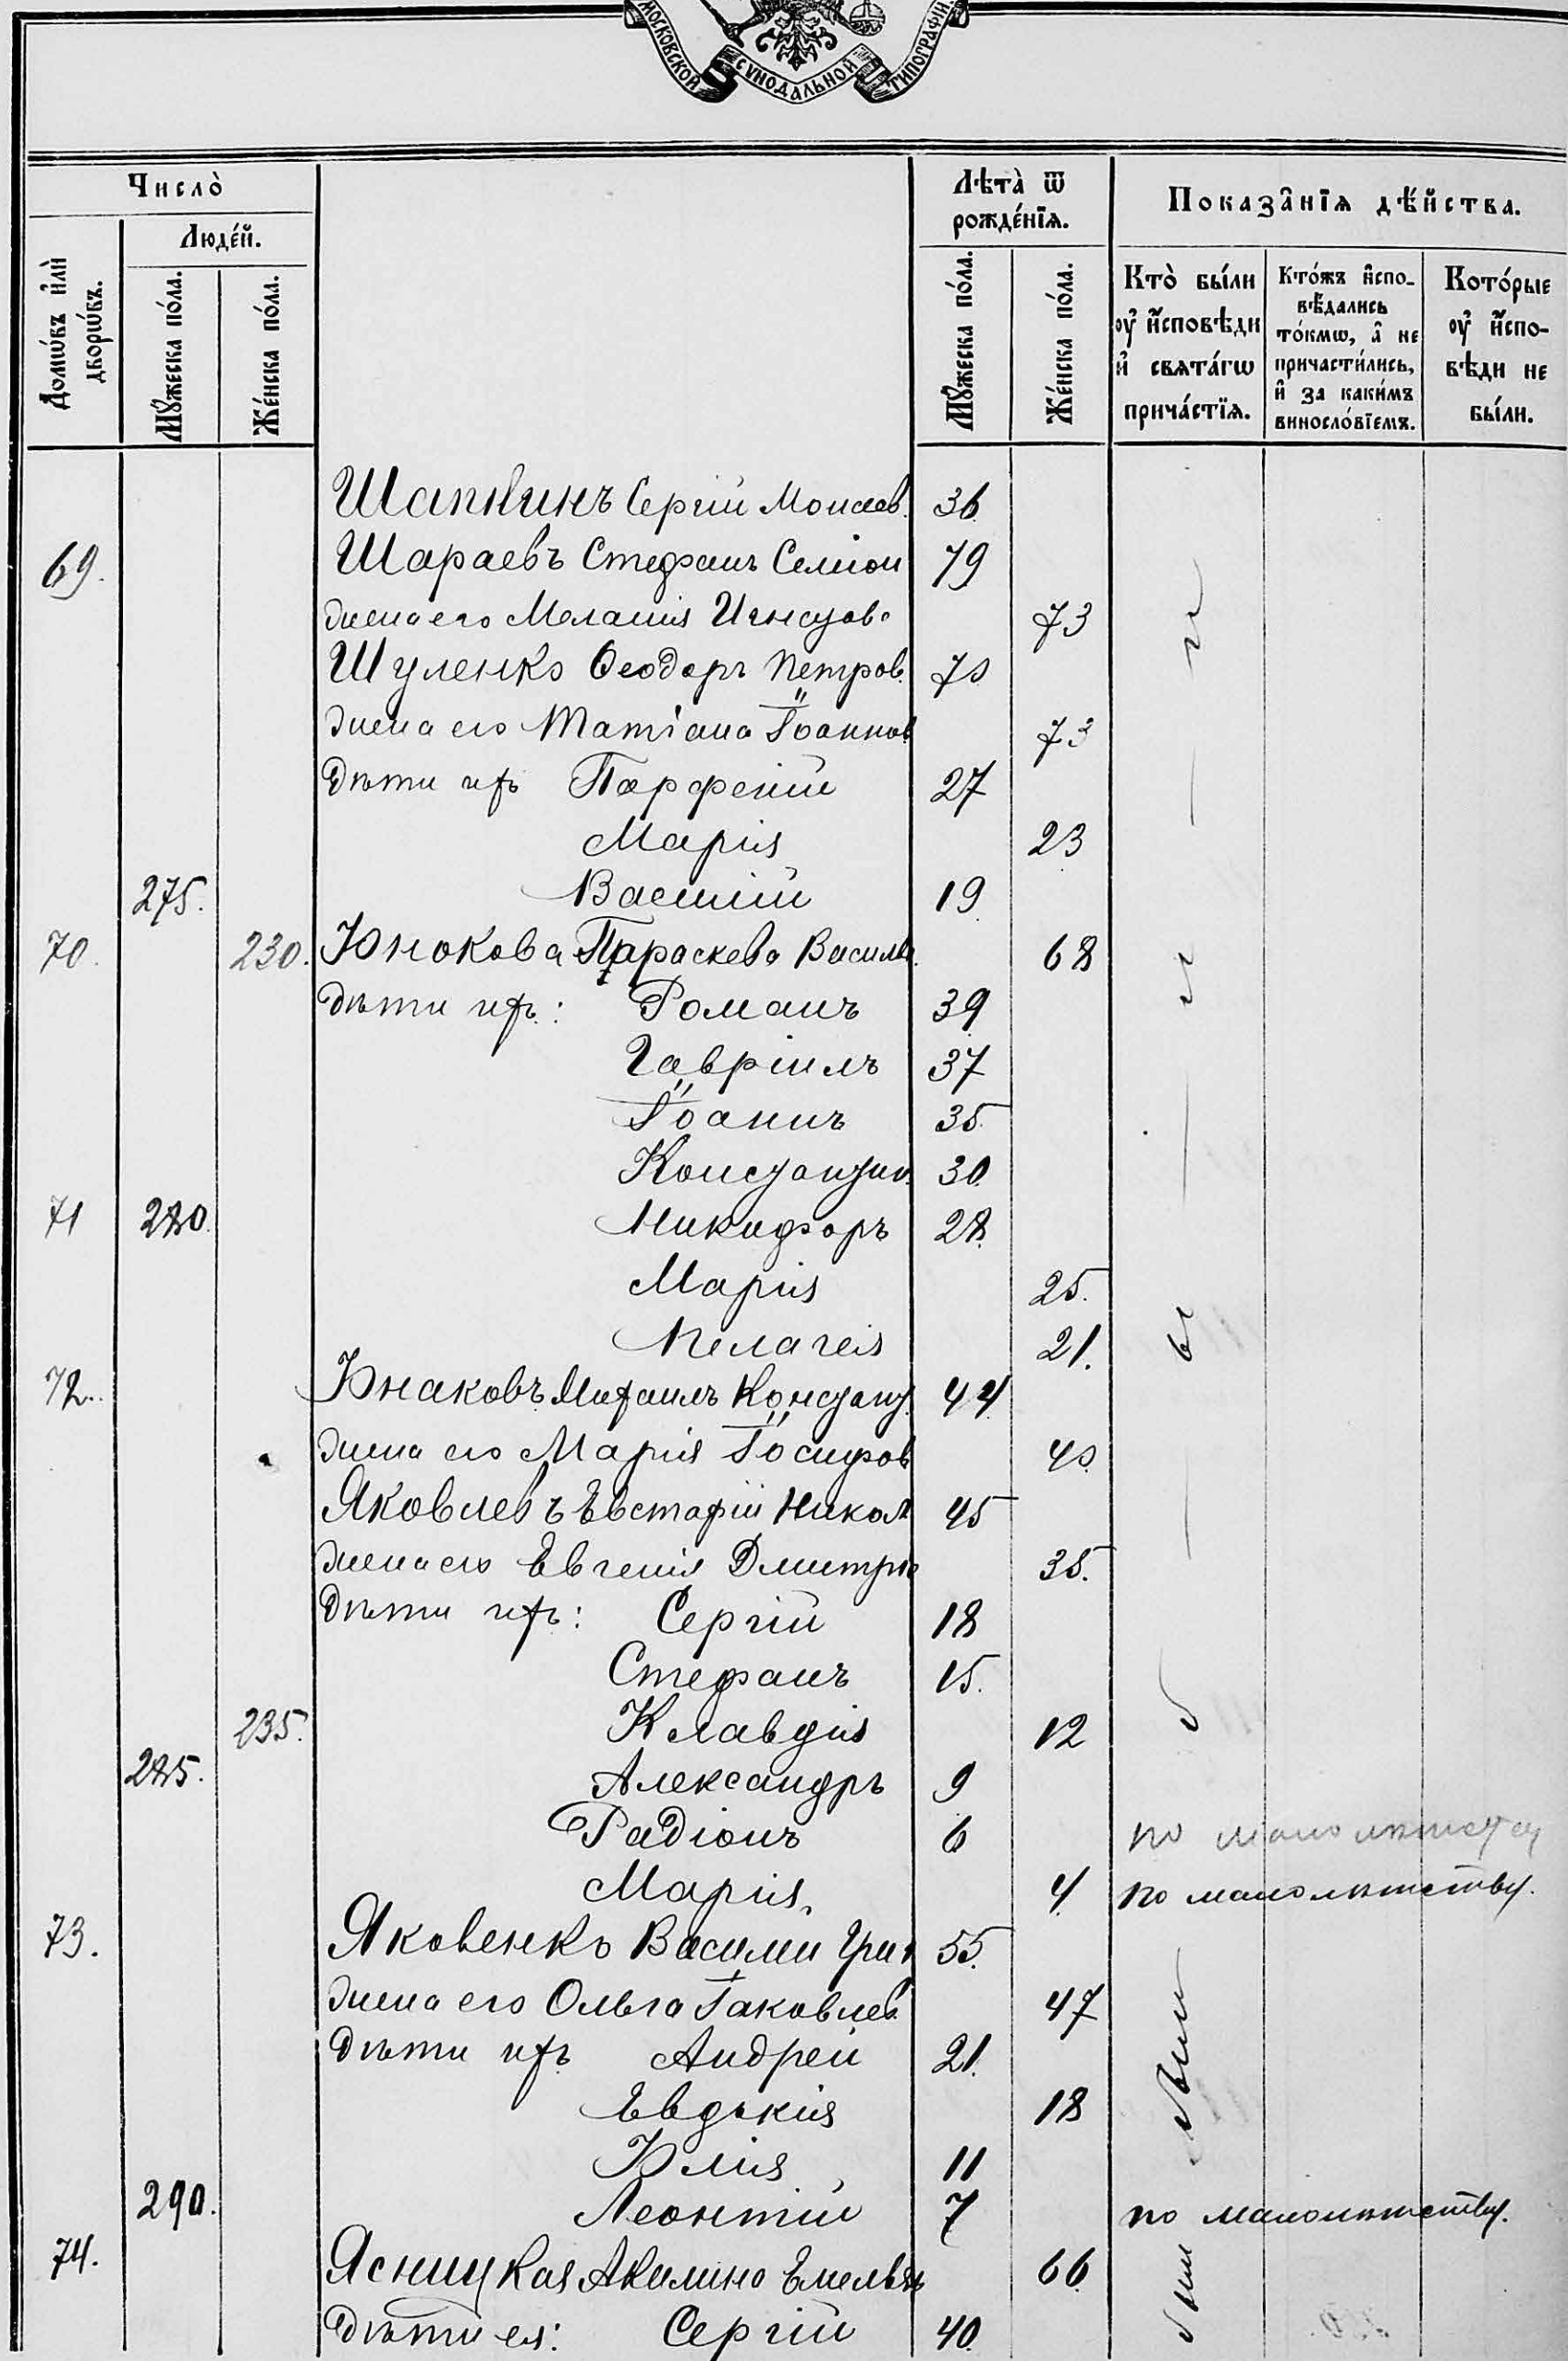 МОСКОВСКОЙ СѴНОДАЛЬНОЙ ТИПОГРАФІИ
Число̀
Лѣта̀ ѿ рожде́нїѧ.
Показа̑нїѧ дѣ́йства.
Домѡ́въ и҆лѝ дворѡ́въ.
Люде́й.
Мꙋ́жеска по́ла.
Же́нска по́ла.
Мꙋ́жеска по́ла.
Же́нска по́ла.
Кто̀ бы́ли ᲂу҆ и҆́сповѣди и҆ свѧта́гѡ прича́стїѧ.
Кто́жъ и҆спо-вѣ́дались то́кмѡ, а҆ не причасти́лись, и҆ за каки́мъ виносло́вїемъ.
Кото́рые ᲂу҆ и҆́спо-вѣди не бы́ли.
Сергій Моисеев. 36
69. Шараевъ Стефанъ Семіон 79
жена его Меланія 73
Шуленко Ѳеодоръ Петров. 70
жена его Татіана Іоаннов 73
дѣти ихъ Парфеній 27
Марія 23
275. Василій 19
70. 230. Юнокова Параскева Василь. 68
дѣти ихъ: Романъ 39
Гавріилъ 37
Іоаннъ 35
Константин. 30
71 280. Никифоръ 28.
Марія 25.
Пелагея 21.
72. Юнаковъ Михаилъ Констант. 44
жена его Марія Іосифов 40
Яковлевъ Евстафій Никол 45
жена его Евгенія Дмитріе 35.
дѣти ихъ: Сергій 18
Стефанъ 15.
235. Клавдія 12
285. Александръ 9
Радіонъ 6 по малолѣтству
Марія 4 по малолѣтству.
73. Яковенко Василій Григ 55.
жена его Ольга Іаковлев 47
дѣти ихъ Андрей 21.
Евдокія 18
Юлія 11
290. Леонтій 7 по малолѣтству.
74. Ясницкая Акилина Емельян 66
дѣти ея: Сергій 40.
были
были